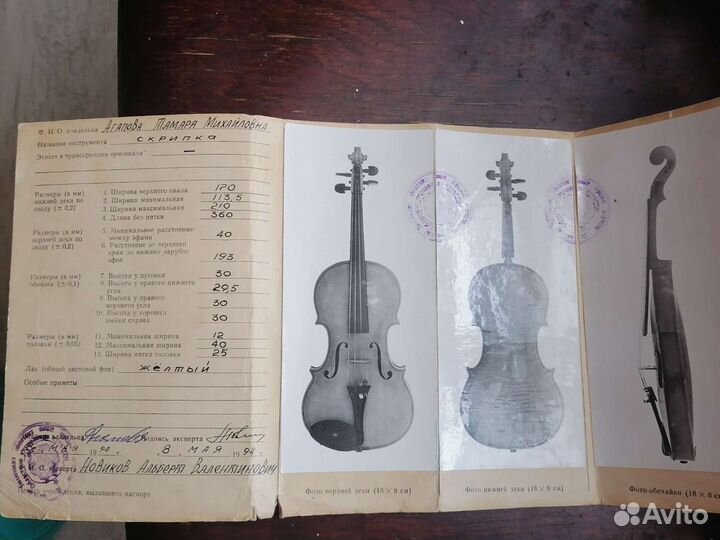 Ф. И. О. владельца Агапова Тамара Михайловна
Название инструмента скрипка
Этикет и транскрипция оригинала —
Размеры (в мм) нижней деки по своду (± 0,2)
1. Ширина верхнего овала 170
2. Ширина минимальная 113,5
3. Ширина максимальная 210
4. Длина без пятки 360
Размеры (в мм) верхней деки по своду (± 0,2)
5. Минимальное расстояние между эфами 40
6. Расстояние от верхнего края до нижних зарубок эфов 193
Размеры (в мм) обечаек (± 0,1)
7. Высота у пуговки 30
8. Высота у правого нижнего угла 29,5
9. Высота у правого верхнего угла 30
10. Высота у корешка шейки справа 30
Размеры (в мм) головки (± 0,05)
11. Минимальная ширина 12
12. Максимальная ширина 40
13. Ширина пятки головки 25
Лак (общий цветовой фон) жёлтый
Особые приметы
владельца подпись эксперта
мая 1994 г. 8 мая 1994 г.
И. О. эксперта Новиков Альберт Валентинович
учреждения, выдавшего паспорт
Фото верхней деки (18 × 8 см)
Фото нижней деки (18 × 8 см)
Фото обечайки (18 × 8 см)
Avito